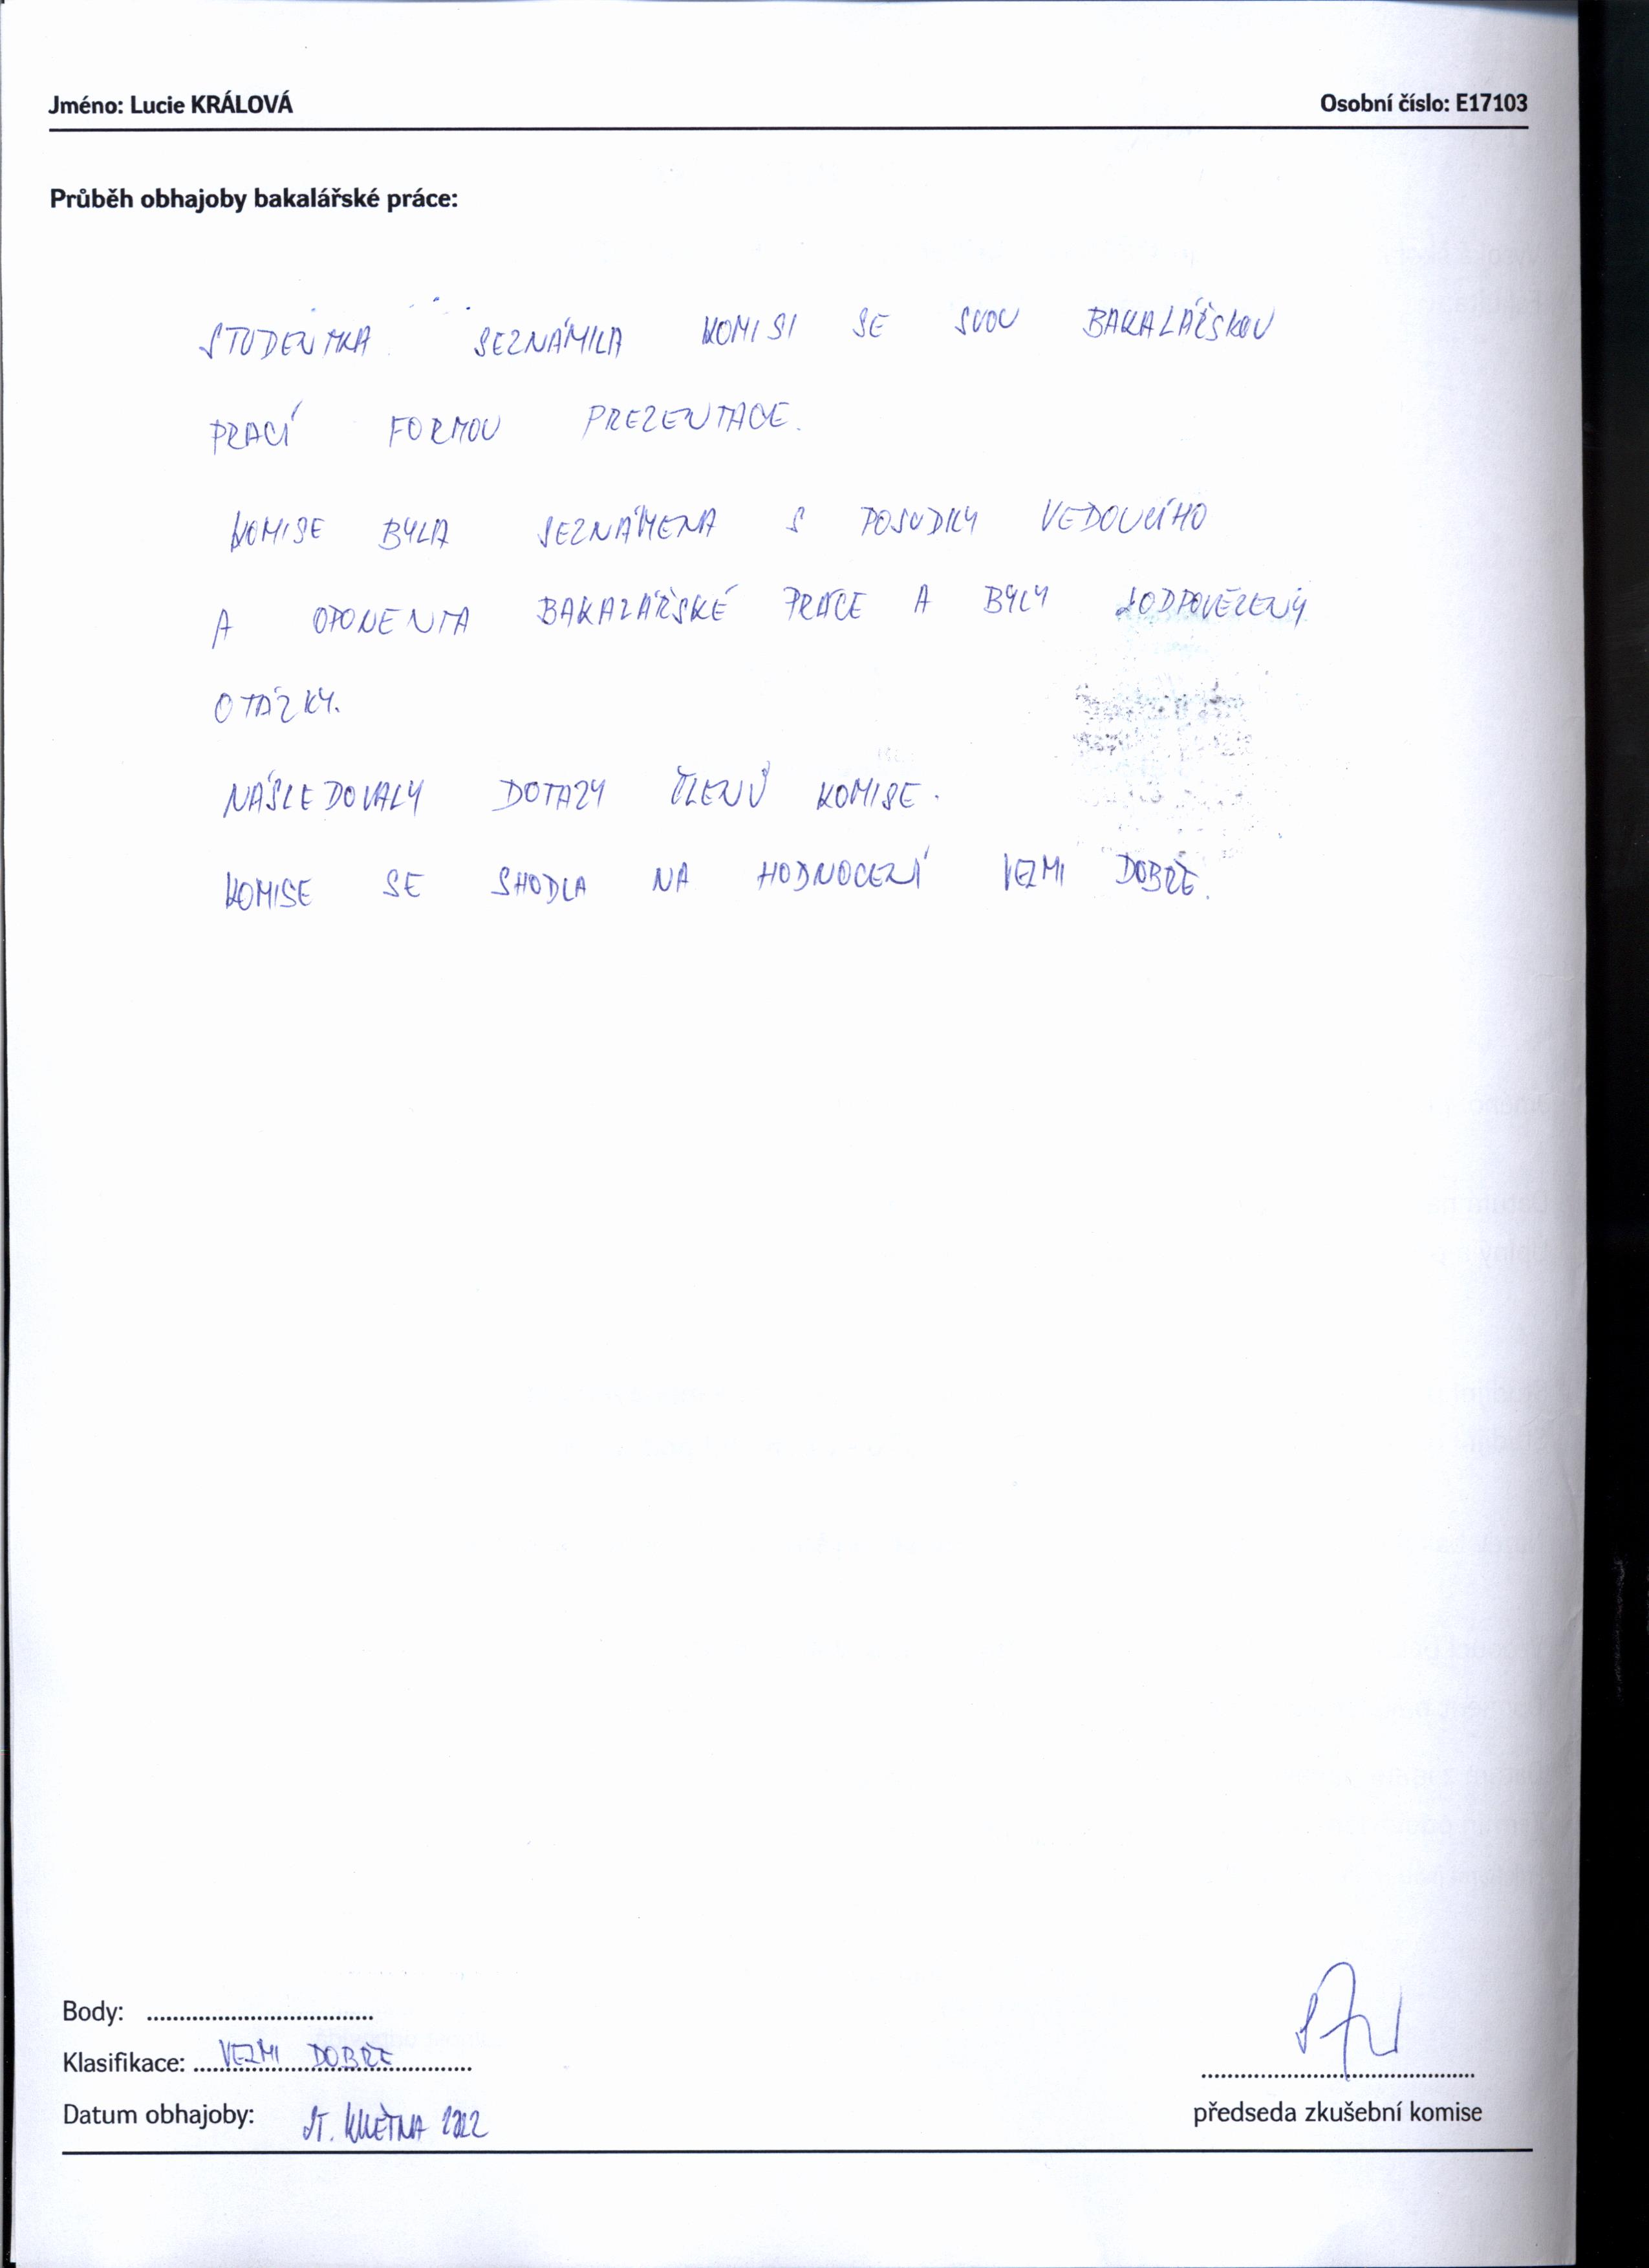 Jméno: Lucie KRÁLOVÁ Osobní číslo: E17103
Průběh obhajoby bakalářské práce:
STUDENTKA SEZNÁMILA KOMISI SE SVOU BAKALÁŘSKOU
PRACÍ FORMOU PREZENTACE.
KOMISE BYLA SEZNÁMENA S POSUDKY VEDOUCÍHO
A OPONENTA BAKALÁŘSKÉ PRÁCE A BYLY ZODPOVĚZENY
OTÁZKY.
NÁSLEDOVALY DOTAZY ČLENŮ KOMISE.
KOMISE SE SHODLA NA HODNOCENÍ VELMI DOBŘE.
Body:
Klasifikace: VELMI DOBŘE
Datum obhajoby: KVĚTNA 2022
předseda zkušební komise